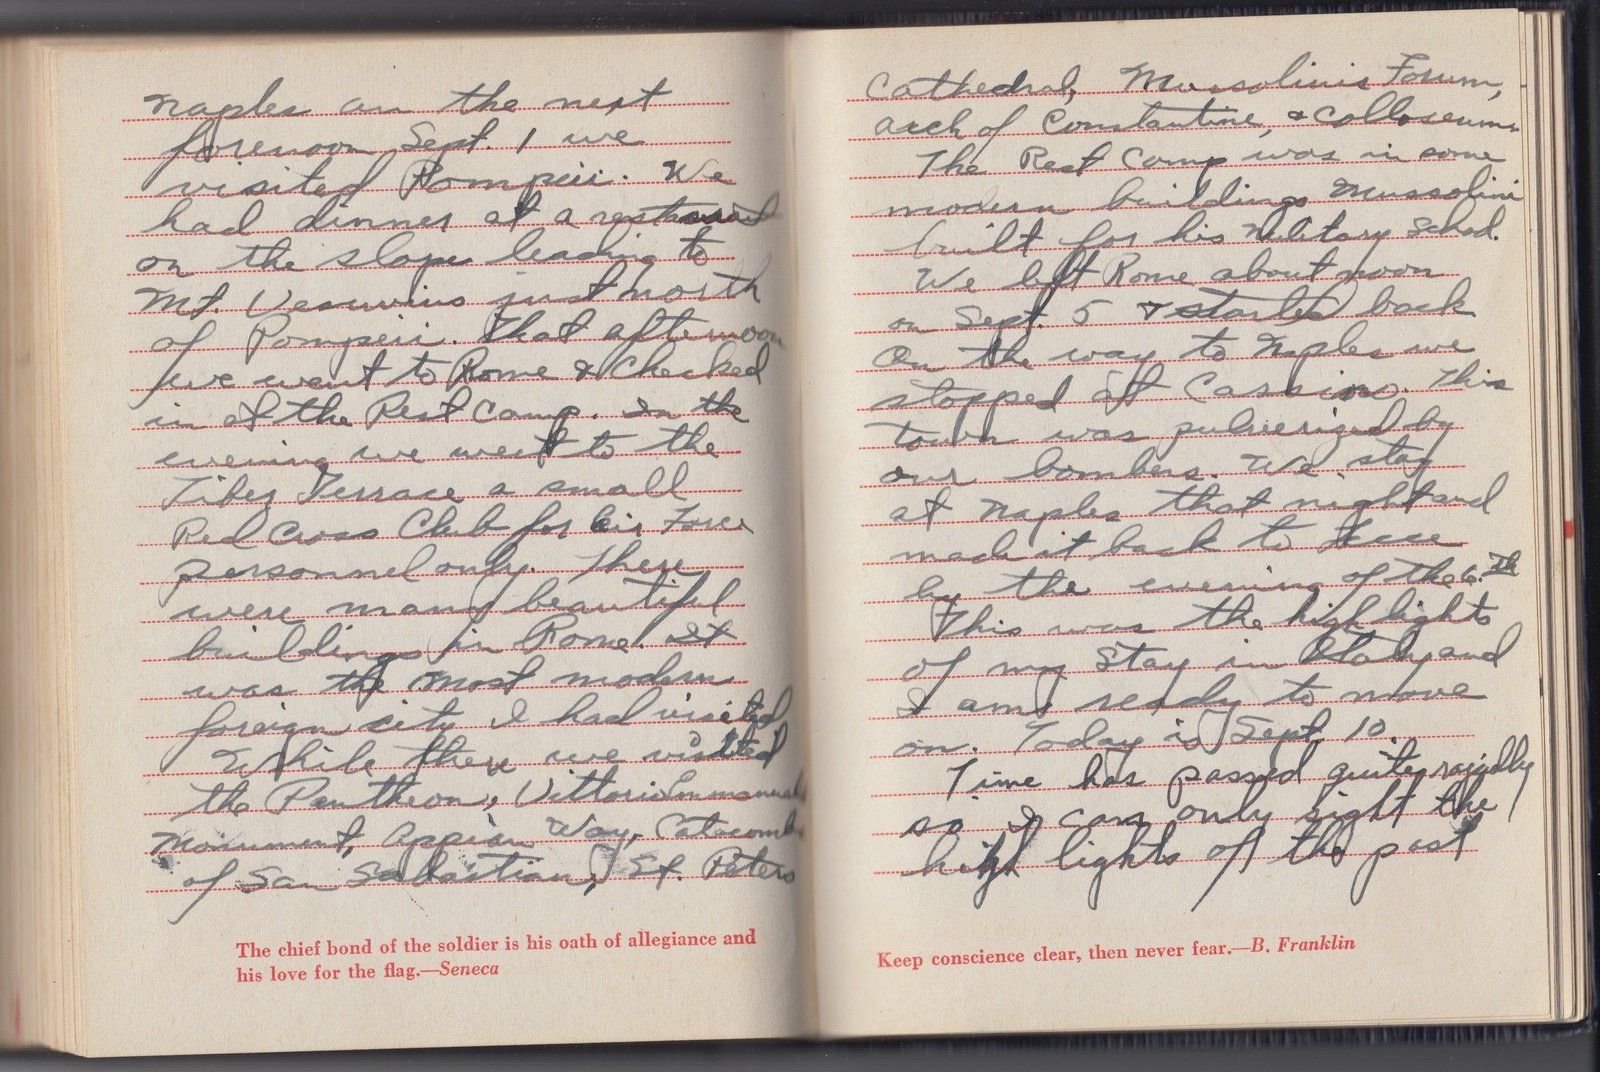 Naples an the next
forenoon Sept. 1 we
visited Pompeii. We
had dinner at a restaurant
on the slope leading to
Mt. Vesuvius just north
of Pompeii. That afternoon
we went to Rome & checked
in at the Rest Camp. In the
evening we went to the
Tiber Terrace a small
Red Cross Club for Air Force
personnel only. There
were many beautiful
buildings in Rome. It
was the most modern
foreign city I had visited
While there we visited
the Pantheon, Vittorio Emmanuel
Monument, Appian Way, Catacombs
of San Sabastian, St. Peters
The chief bond of the soldier is his oath of allegiance and
his love for the flag.—Seneca
Cathedral, Mussolinis Forum,
arch of Constantine, & Colloseum.
The Rest Camp was in some
modern buildings Mussolini
built for his Military School.
We left Rome about noon
on Sept. 5 & started back
On the way to Naples we
stopped at Cassino. This
town was pulverized by
our bombers. We stay
at Naples that night and
made it back to Lecce
by the evening of the 6.th
This was the high lights
of my stay in Italy and
I am ready to move
on. Today is Sept 10.
Time has passed quite rapidly
so I can only sight the
high lights of the past
Keep conscience clear, then never fear.—B. Franklin